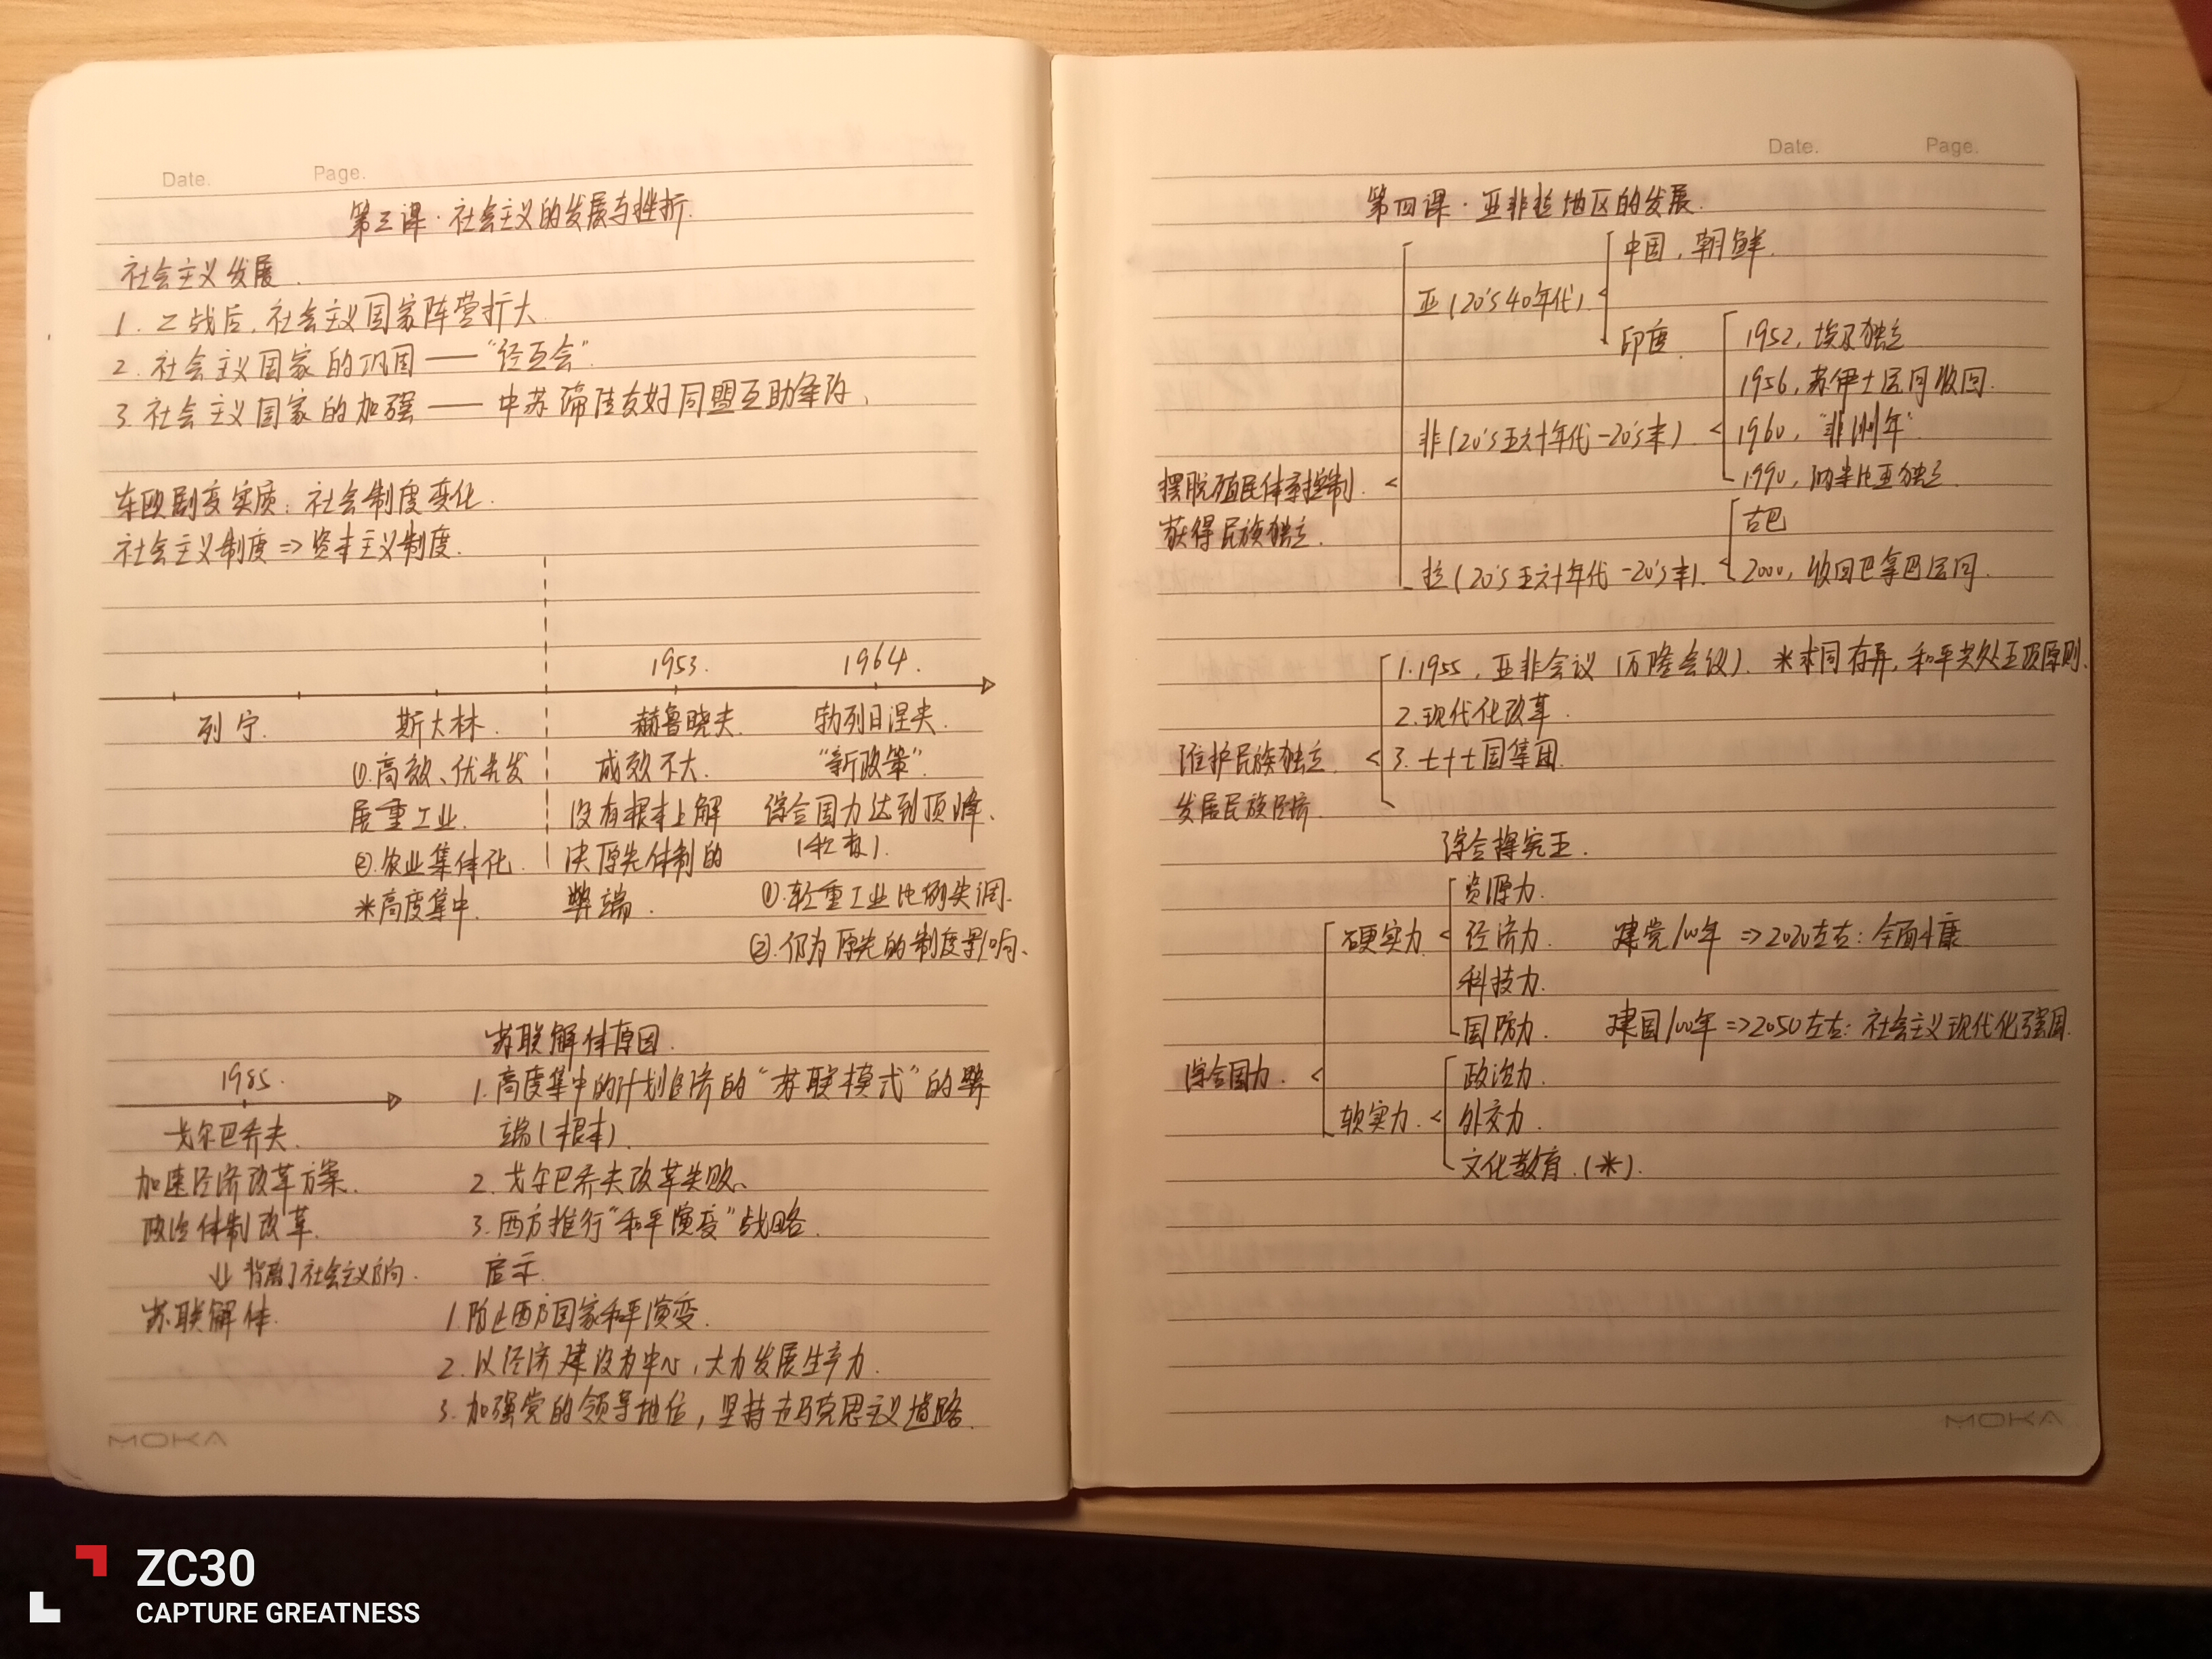 Date. Page.
第三课·社会主义的发展与挫折.
社会主义发展.
1. 二战后,社会主义国家阵营扩大
2. 社会主义国家的巩固——“经互会”.
3. 社会主义国家的加强——中苏缔结友好同盟互助条约.
东欧剧变实质:社会制度变化.
社会主义制度⇒资本主义制度.
1953. 1964.
列宁. 斯大林. 赫鲁晓夫. 勃列日涅夫.
①.高效、优先发
展重工业.
②.农业集体化.
*高度集中.
成效不大.
没有根本上解
决原先体制的
弊端.
“新政策”.
综合国力达到顶峰、
①.轻重工业比例失调.
②.仍为原先的制度影响、
1985.
戈尔巴乔夫.
加速经济改革方案.
政治体制改革.
⇓背离了社会主义方向.
苏联解体.
苏联解体原因.
1.高度集中的计划经济的“苏联模式”的弊
端(根本).
2. 戈尔巴乔夫改革失败、
3.西方推行“和平演变”战略.
启示.
1.防止西方国家和平演变.
2. 以经济建设为中心,大力发展生产力.
3.加强党的领导地位,坚持走马克思主义道路.
MOKA
Date. Page.
第四课·亚非拉地区的发展.
摆脱殖民体系控制.
获得民族独立.
亚(20's 40年代).
中国,朝鲜.
印度.
非(20's五六十年代-20's末).
1952,埃及独立
1956,苏伊士运河收回.
1960,“非洲年”.
1990,纳米比亚独立.
拉(20's五六十年代-20's末).
古巴
2000,收回巴拿巴运河.
维护民族独立.
发展民族经济.
1.1955,亚非会议(万隆会议). *求同存异,和平共处五项原则.
2.现代化改革.
3.七十七国集团.
综合探究五.
综合国力.
硬实力.
资源力.
经济力. 建党100年⇒2020左右:全面小康
科技力.
国防力. 建国100年⇒2050左右:社会主义现代化强国.
软实力.
政治力.
外交力.
文化教育.(*).
MOKA
ZC30
CAPTURE GREATNESS